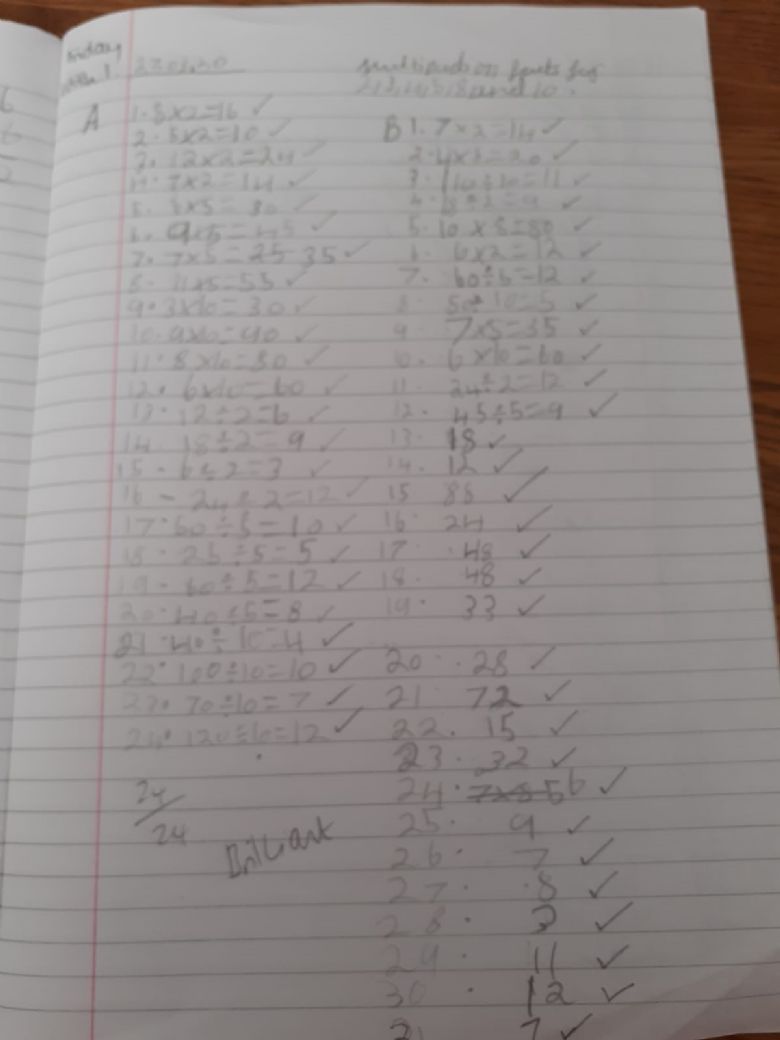 Friday
22.01.20
multiplication facts for
2,3,4,5,8 and 10.
A
1. 8×2=16 ✓
2. 5×2=10 ✓
3. 12×2=24 ✓
4. 7×2=14 ✓
6. 9×5=45 ✓
7. 7×5=25 35 ✓
8. 11×5=55 ✓
9. 3×10=30 ✓
10. 9×10=90 ✓
11. 8×10=80 ✓
12. 6×10=60 ✓
13. 12÷2=6 ✓
14. 18÷2=9 ✓
15. 6÷2=3 ✓
16 - 24÷2=12 ✓
17. 50÷5=10 ✓
18. 25÷5=5 ✓
19 - 60÷5=12 ✓
20. 40÷5=8 ✓
21. 40÷10=4 ✓
22. 100÷10=10 ✓
23. 70÷10=7 ✓
24. 120÷10=12 ✓
24/24
Brilliant
B 1. 7×2=14 ✓
3. 110÷10=11 ✓
4. 18÷2=9 ✓
5. 10×8=80 ✓
6×2=12 ✓
7. 60÷5=12 ✓
8. 50÷10=5 ✓
9 7×5=35 ✓
10. 6×10=60 ✓
11. 24÷2=12 ✓
12. 45÷5=9 ✓
13. 18 ✓
14. 12 ✓
15 88 ✓
16. 24 ✓
17 48 ✓
18. 48 ✓
19. 33 ✓
20. 28 ✓
21. 72 ✓
22. 15 ✓
23. 32 ✓
24. 56 ✓
25. 9 ✓
26. 7 ✓
27. 8 ✓
28. 3 ✓
29. 11 ✓
30. 12 ✓
31 7 ✓